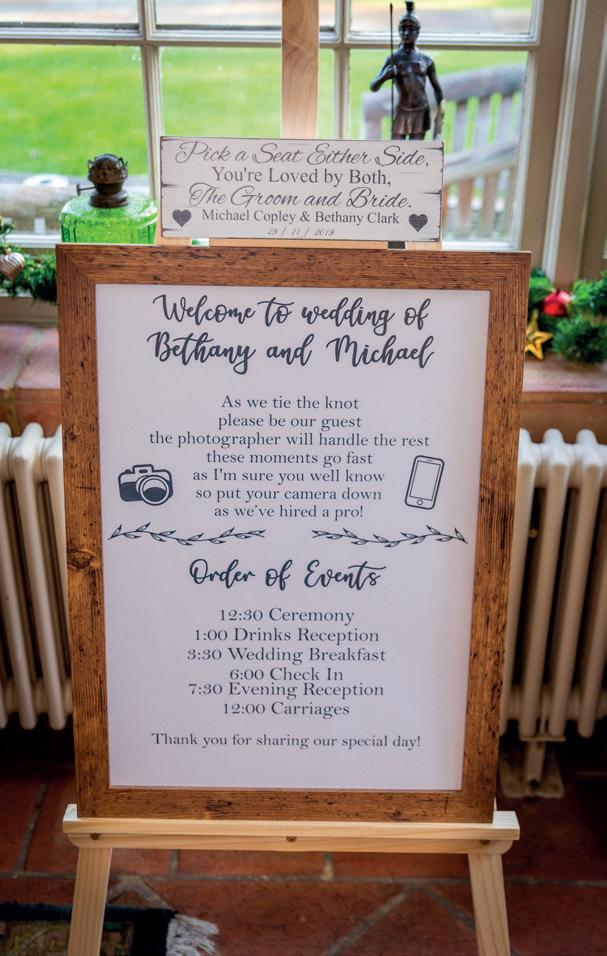 Pick a Seat Either Side,
You're Loved by Both,
The Groom and Bride.
Michael Copley & Bethany Clark
29 / 11 / 2019
Welcome to wedding of
Bethany and Michael
As we tie the knot
please be our guest
the photographer will handle the rest
these moments go fast
as I'm sure you well know
so put your camera down
as we've hired a pro!
Order of Events
12:30 Ceremony
1:00 Drinks Reception
3:30 Wedding Breakfast
6:00 Check In
7:30 Evening Reception
12:00 Carriages
Thank you for sharing our special day!